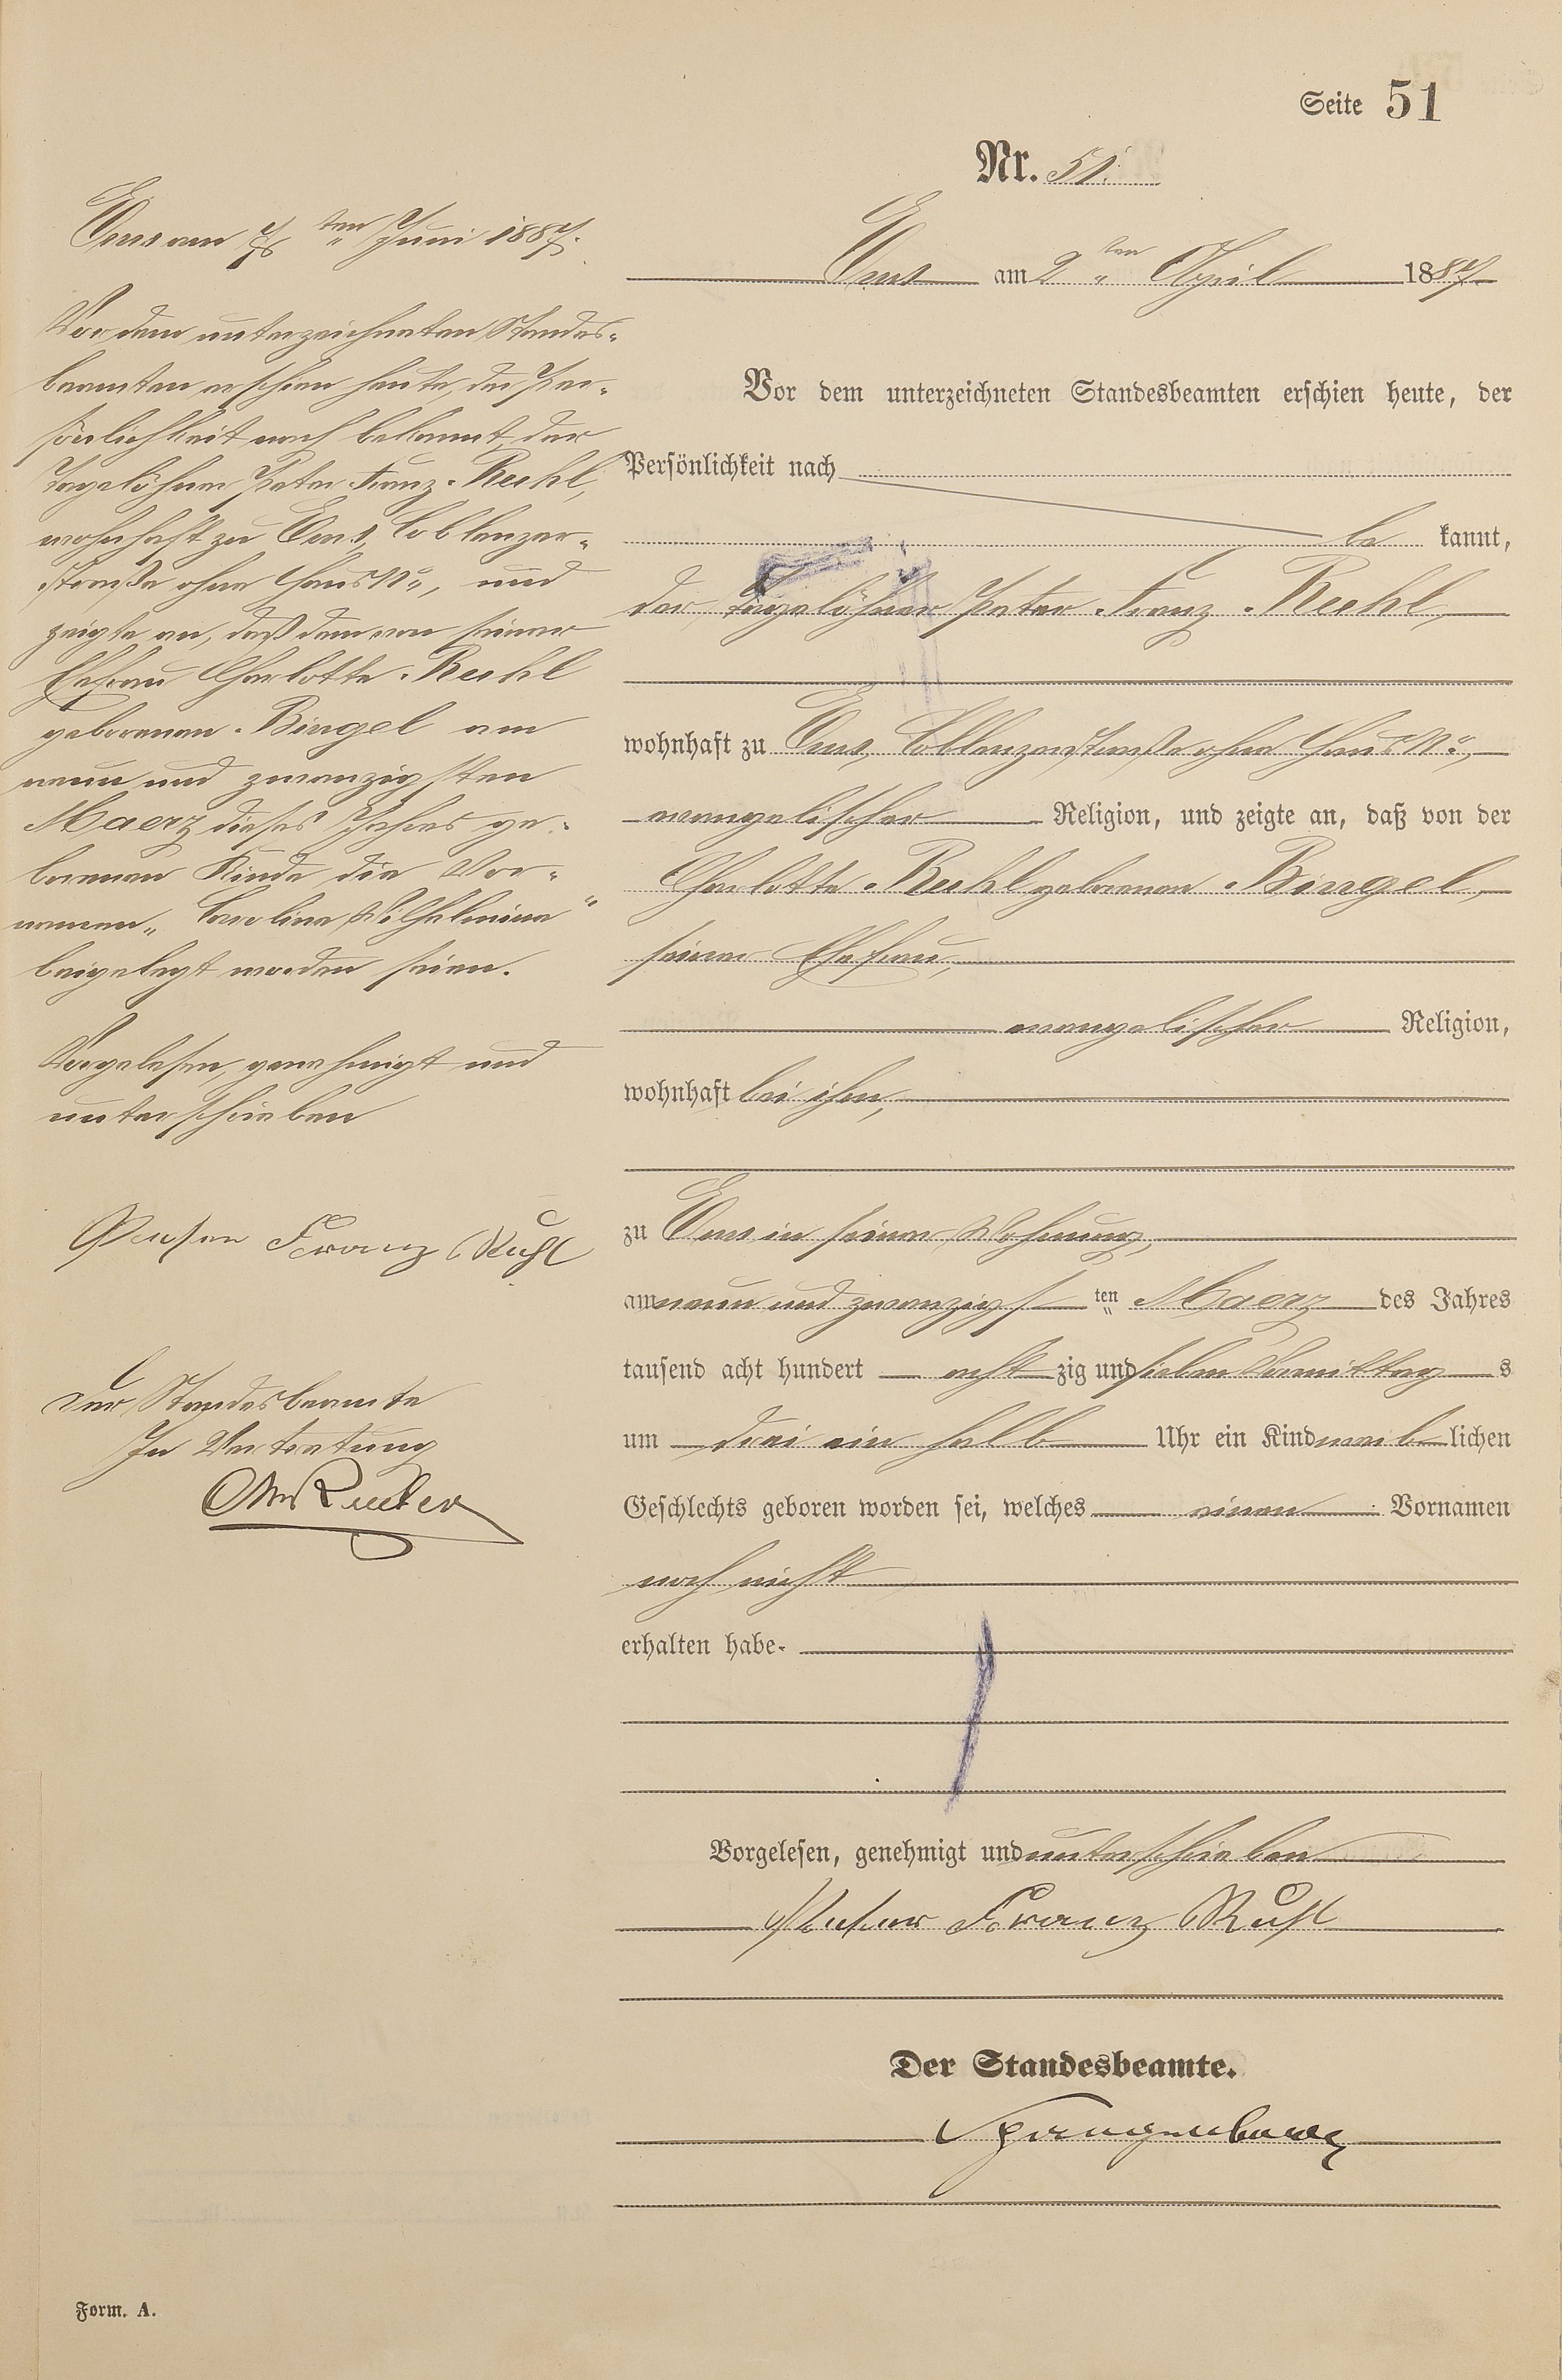 Seite 51
Nr. 51.
Ems am 2ten April 1887
Vor dem unterzeichneten Standesbeamten erschien heute, der
Persönlichkeit nach
be kannt,
der Tagelöhner Peter Franz Ruhl
wohnhaft zu Ems, Coblenzerstraße ohne Haus No,
evangelischer Religion, und zeigte an, daß von der
Charlotte Ruhl geborenen Bingel,
seiner Ehefrau,
evangelischer Religion,
wohnhaft bei ihm,
zu Ems in seiner Wohnung,
am neun und zwanzigs ten Maerz des Jahres
tausend acht hundert acht zig und sieben Vormittag s
um drei ein halb Uhr ein Kind weib lichen
Geschlechts geboren worden sei, welches einen Vornamen
noch nicht
erhalten habe.
Vorgelesen, genehmigt und unterschrieben
Peter Franz Ruhl
Der Standesbeamte.
Spangenberg
Ems am ten Juni 1887.
Vor dem unterzeichneten Standes-
beamten erschien heute, der Per-
sönlichkeit nach bekannt, der
Tagelöhner Peter Franz Ruhl,
wohnhaft zu Ems, Coblenzer-
straße ohne Haus No, und
zeigte an, daß dem von seiner
Ehefrau Charlotte Ruhl
geborenen Bingel am
neun und zwanzigsten
Maerz dieses Jahres ge-
borenen Kinde die Vor-
namen „Carolina Wilhelmina"
beigelegt worden seien.
Vorgelesen, genehmigt und
unterschrieben
Peter Franz Ruhl
Der Standesbeamte
In Vertretung
Form. A.